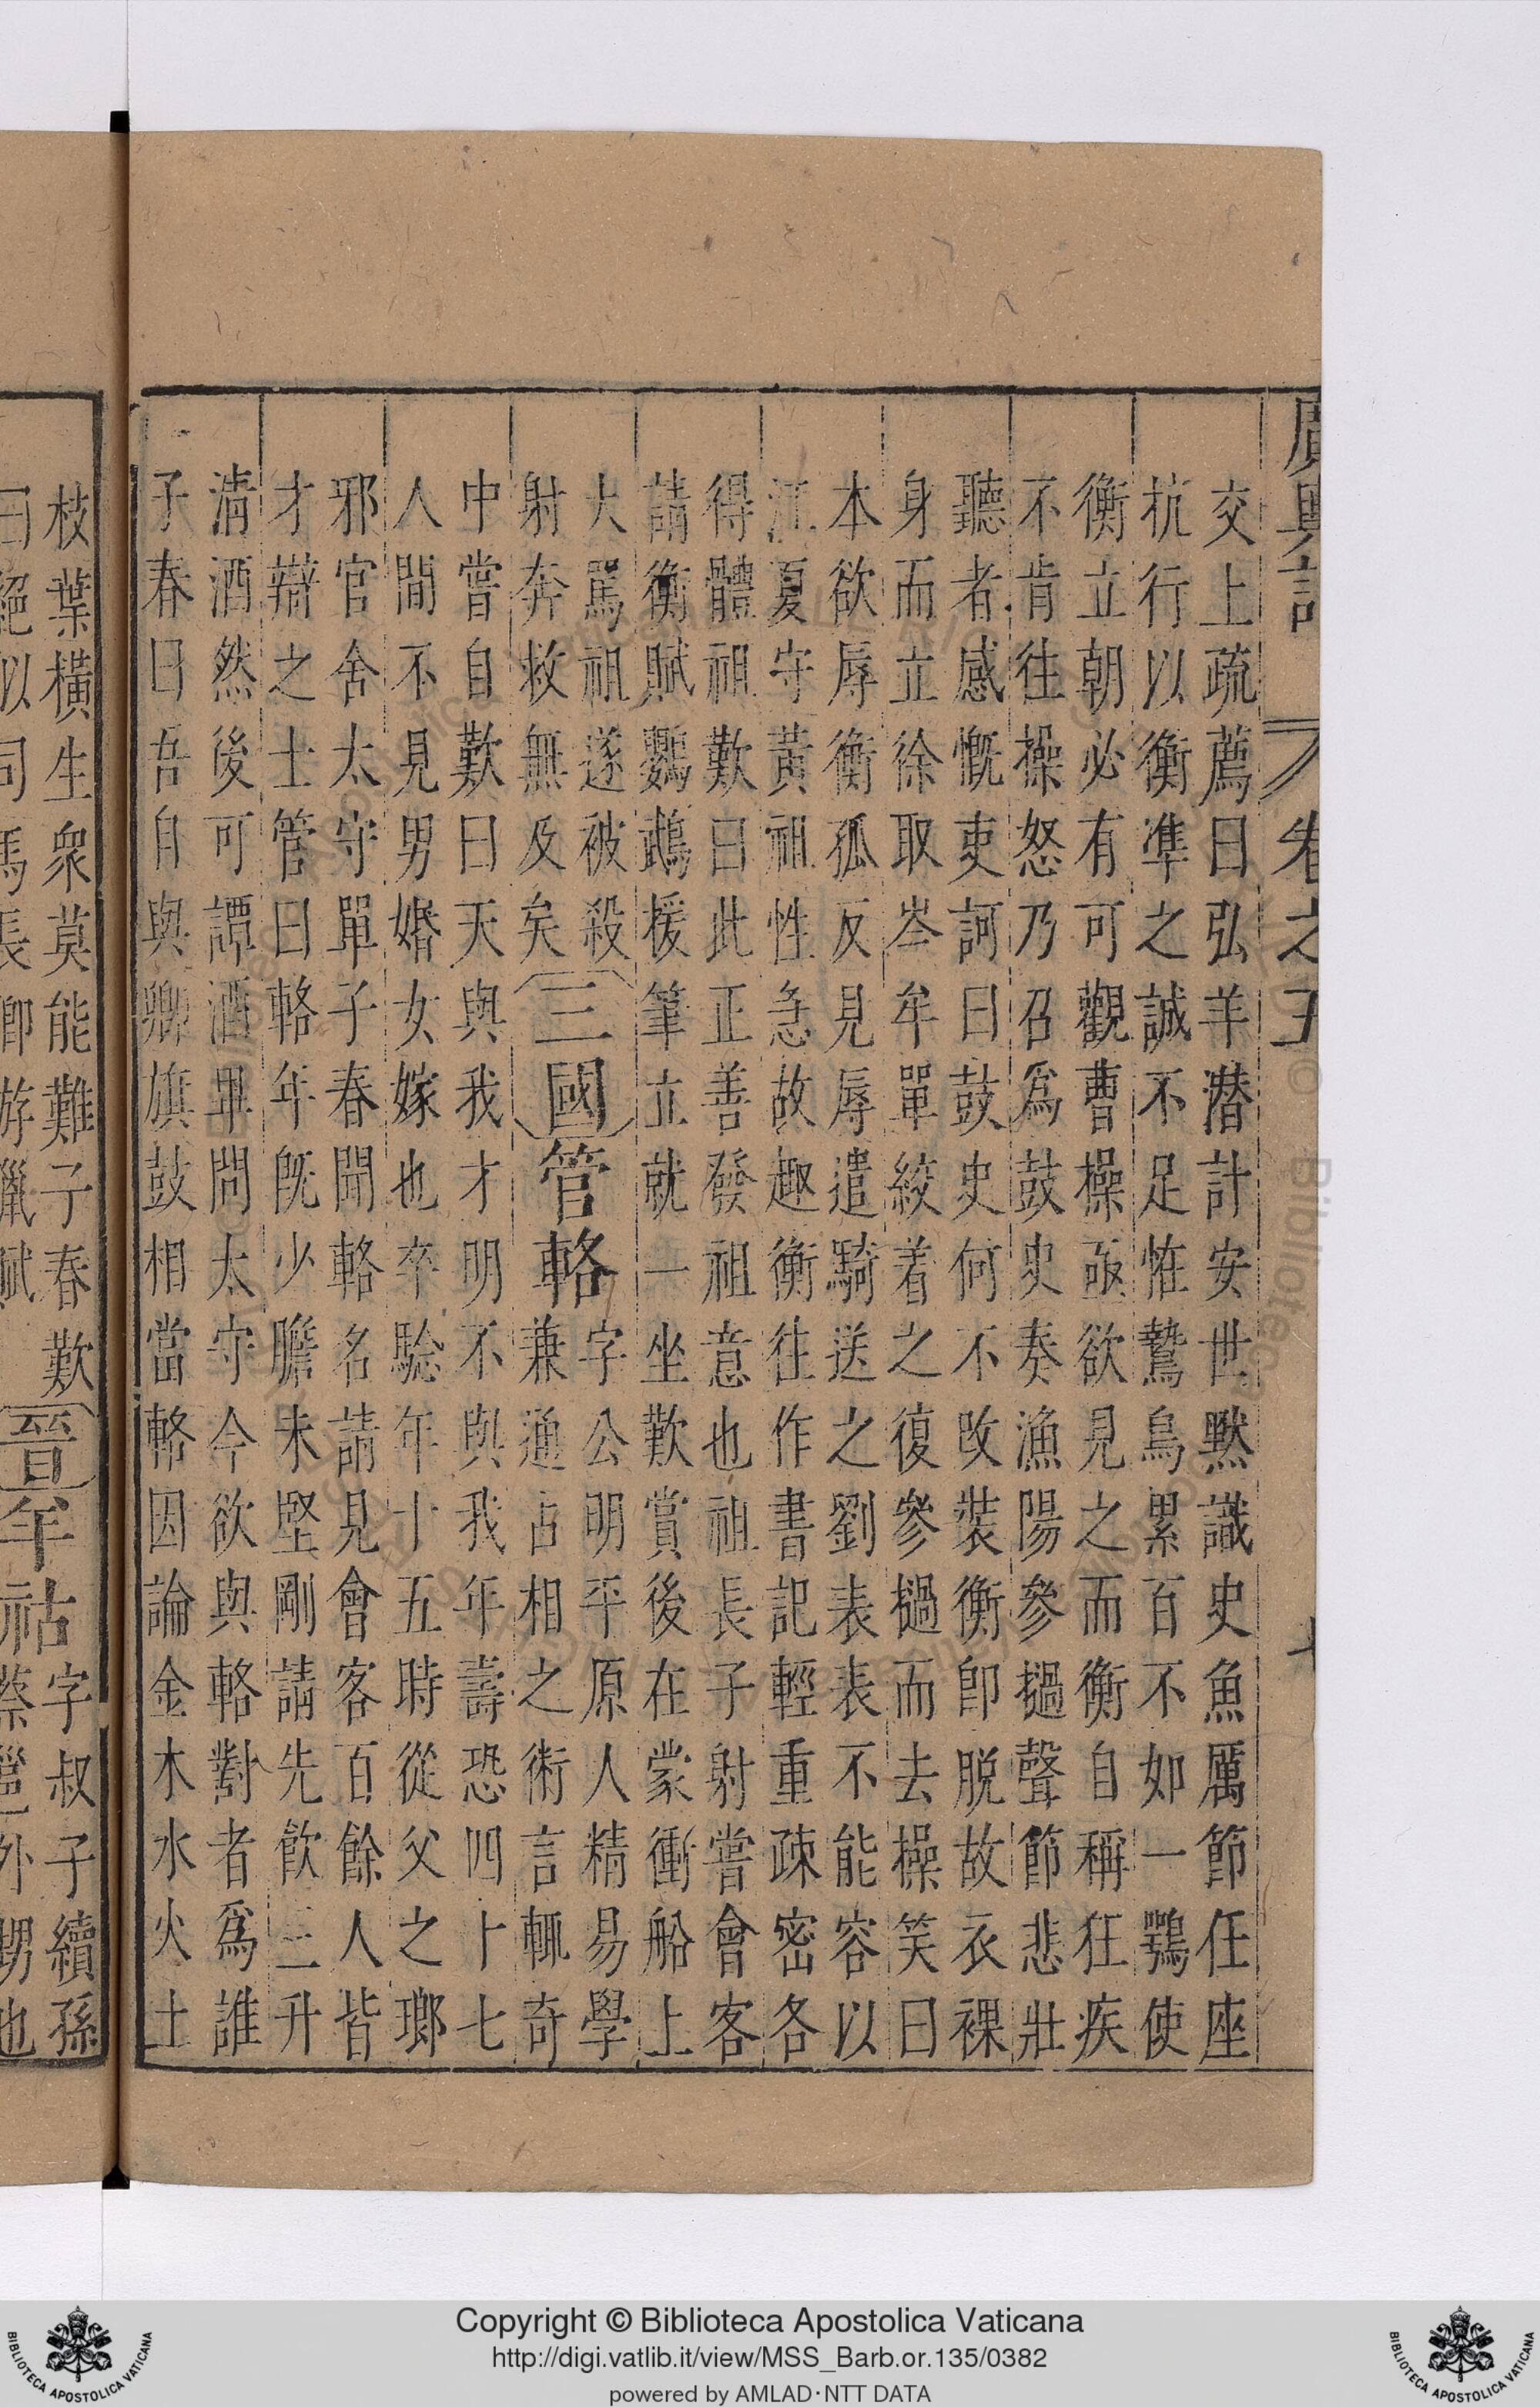 廣輿記 卷之五
交上疏薦曰弘羊潜計安世默識史魚厲節任座
抗行以衡凖之誠不足恠鷙鳥累百不如一鶚使
衡立朝必有可觀曹操亟欲見之而衡自稱狂疾
不肯往操怒乃召爲鼓史奏漁陽參撾聲節悲壯
聽者感慨吏訶曰鼓史何不改裝衡卽脫故衣裸
身而立徐取岑牟單絞着之復參撾而去操笑曰
本欲辱衡孤反見辱遣騎送之劉表表不能容以
江夏守黃祖性急故趣衡往作書記輕重疎密各
得體祖歎曰此正善發祖意也祖長子射嘗會客
請衡賦鸚鵡援筆立就一坐歎賞後在蒙衝船上
大罵祖遂被殺
射奔救無及矣
三國
管輅
字公明平原人精易學
兼通占相之術言輒奇
中嘗自歎曰天與我才明不與我年壽恐四十七
人間不見男婚女嫁也卒騐年十五時從父之瑯
邪官舍太守單子春聞輅名請見會客百餘人皆
才辯之士管曰輅年既少膽未堅剛請先飲三升
清酒然後可譚酒畢問太守今欲與輅對者爲誰
子春曰吾自與卿旗鼓相當輅因論金木水火土
枝葉橫生衆莫能難子春歎
曰絕似司馬長卿游獵賦
晉
羊祜
字叔子續孫
蔡邕外甥也
Copyright © Biblioteca Apostolica Vaticana
http://digi.vatlib.it/view/MSS_Barb.or.135/0382
powered by AMLAD·NTT DATA
BIBLIOTECA APOSTOLICA VATICANA
BIBLIOTECA APOSTOLICA VATICANA